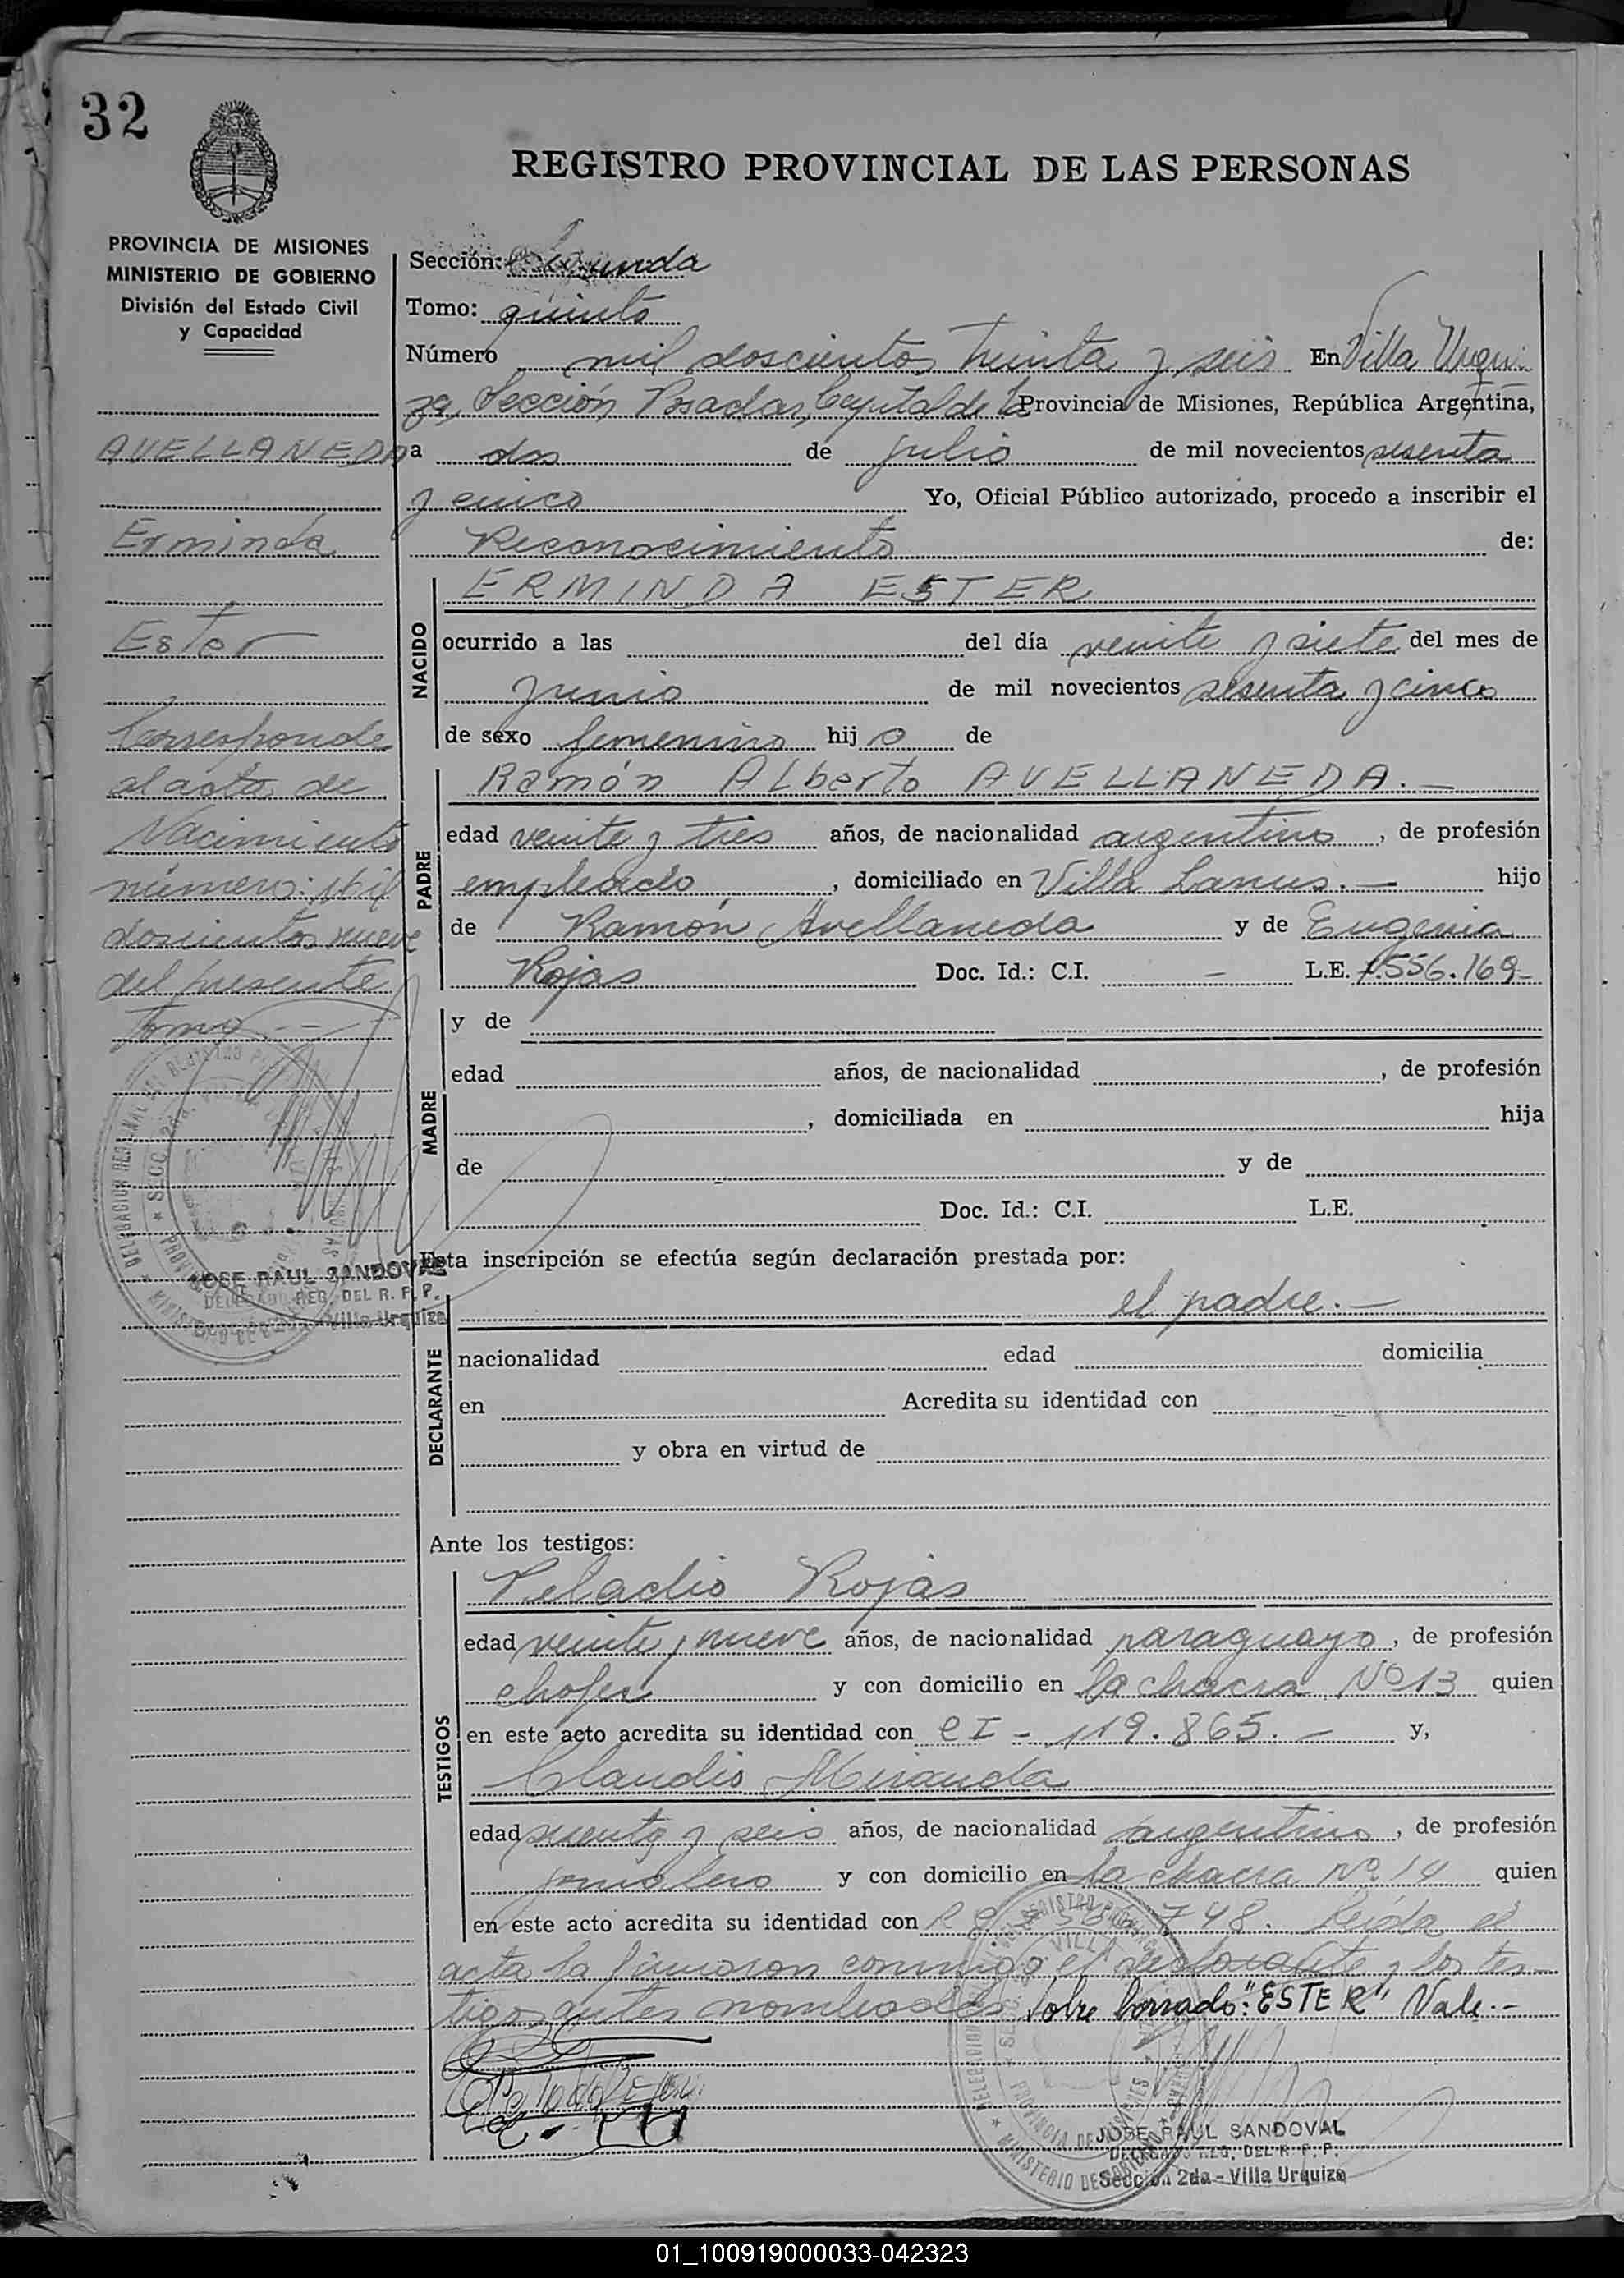 32
REGISTRO PROVINCIAL DE LAS PERSONAS
PROVINCIA DE MISIONES
MINISTERIO DE GOBIERNO
División del Estado Civil
y Capacidad
AVELLANEDA
Erminda
Ester
Corresponde
al acta de
Nacimiento
número: Mil
doscientos nueve
del presente
Tomo
JOSE RAUL SANDOVAL
DELEGADO REG. DEL R. P. P.
Villa Urquiza
Sección: Segunda
Tomo: quinto
Número mil doscientos treinta y seis En Villa Urqui
za, Sección Posadas, Capital de la Provincia de Misiones, República Argentina,
a dos de julio de mil novecientos sesenta
y cinco Yo, Oficial Público autorizado, procedo a inscribir el
Reconocimiento de:
NACIDO
ERMINDA ESTER
ocurrido a las del día veinte y siete del mes de
junio de mil novecientos sesenta y cinco
de sexo femenino hijo de
PADRE
Ramón Alberto AVELLANEDA.-
edad veinte y tres años, de nacionalidad argentino, de profesión
empleado, domiciliado en Villa Lanus.- hijo
de Ramón Avellaneda y de Eugenia
Rojas Doc. Id.: C.I. - L.E. 7.556.169-
MADRE
y de
edad años, de nacionalidad , de profesión
, domiciliada en hija
de y de
Doc. Id.: C.I. L.E.
Esta inscripción se efectúa según declaración prestada por:
DECLARANTE
el padre.-
nacionalidad edad domicilia
en Acredita su identidad con
y obra en virtud de
Ante los testigos:
TESTIGOS
Peladio Rojas
edad veinte y nueve años, de nacionalidad paraguayo, de profesión
chofer y con domicilio en la chacra Nº 13 quien
en este acto acredita su identidad con CI - 119.865.- y,
Claudio Miranda
edad y seis años, de nacionalidad argentino, de profesión
jornalero y con domicilio en la chacra Nº 14 quien
en este acto acredita su identidad con 748. Leída el
acta la firmaron conmigo el declarante y los tes
tigos antes nombrados sobre borrado: "ESTER" Vale.-
JOSE RAUL SANDOVAL
DELEGADO REG. DEL R. P. P.
Sección 2da - Villa Urquiza
01_100919000033-042323